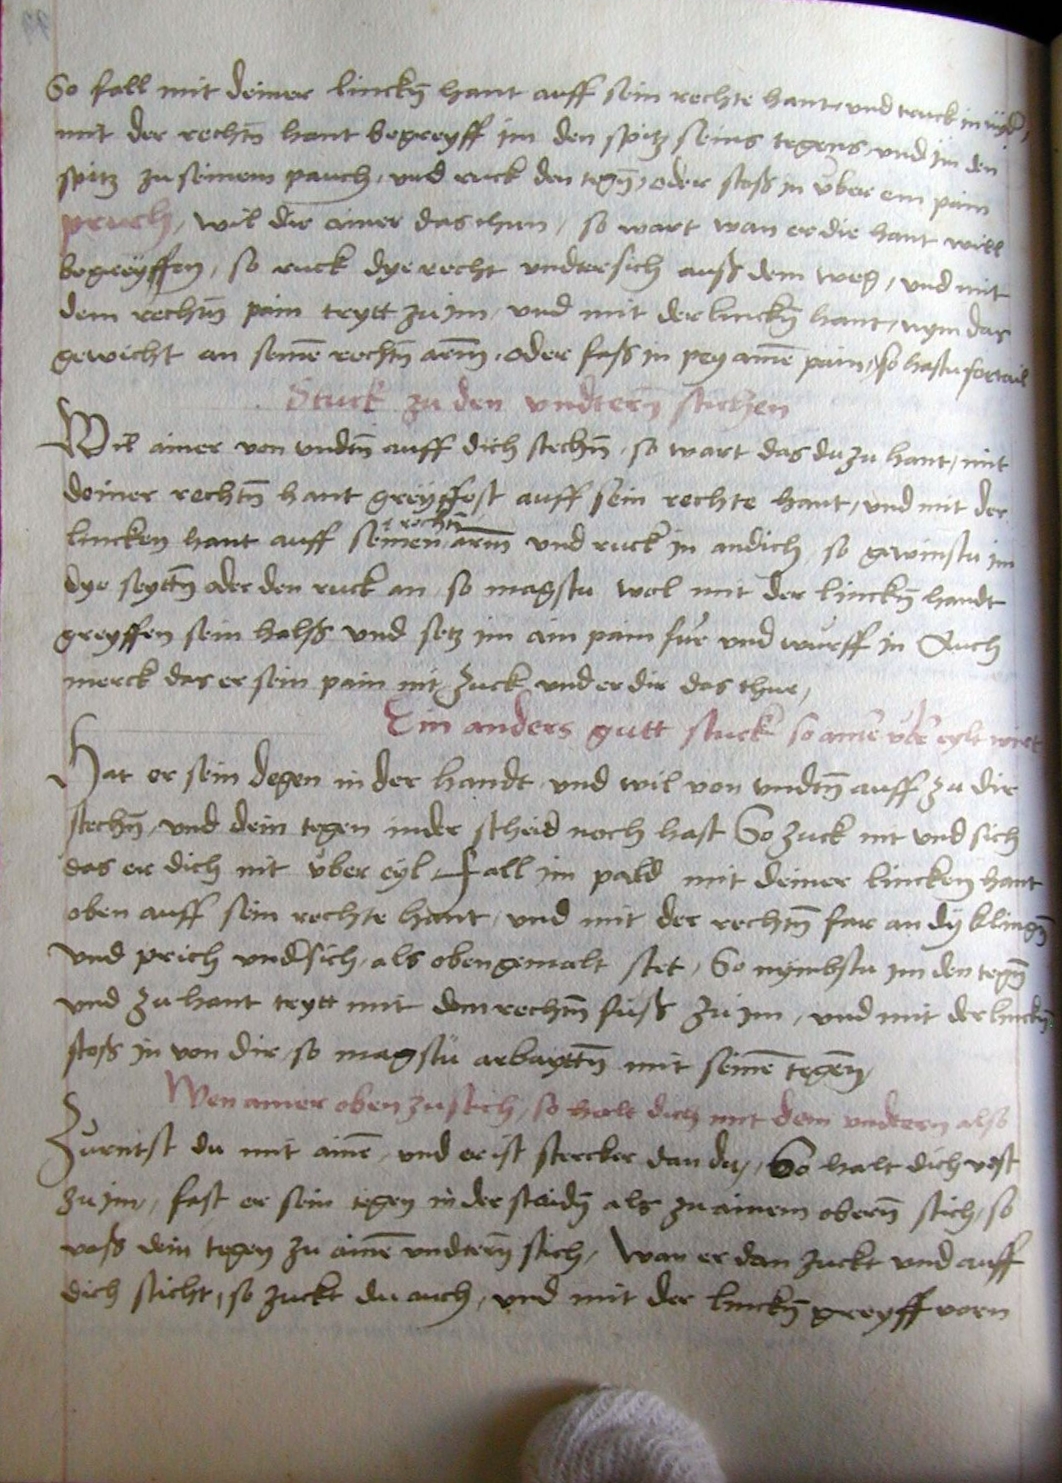 So fall mit deiner linckñ hant auff sein rechte hant, und truck in
mit der rechtñ hant begreyff im den spitz seins tegens, und im den
spitz zu seinem pauch, und ruck den tegñ, oder stoß in über ein pain
pruch, wil dir ainer das thun, so wart wan er die hant will
begreÿffen, so ruck dye recht undtersich auß dem weg, und mit
dem rechtñ pain trytt zu im, und mit der linckñ hant, nym das
gewicht an seinē rechtñ arm, oder faß in pey ainē pain, so hastu fortail
Stuck zu den undterñ stichen
Wil ainer von undtñ auff dich stechñ, so wart das du zu hant, mit
deiner rechtñ hant greyffest auff sein rechte hant, und mit der
lincken hant auff seinen rechtñ arm und ruck in an dich, so gewinstu im
dye seyttñ oder den ruck an, so magstu wol mit der linckñ handt
greyffen sein halß und setz im ain pain für und wurff in Auch
merck das er sein pain nit zuck und er dir das thue,
Ein anders gutt stuck so ainē üb̄er eylt wirt
Hat er sein degen in der handt und wil von undtñ auff zu dir
stechñ, und dein tegen in der scheid noch hast So zuck nit und sich
das er dich nit über eyl, fall im pald mit deiner lincken hant
oben auff sein rechte hant, und mit der rechtñ far an dÿ klingñ
und prich undsich, als oben gemalt stet, So nymbstu im den tegñ
und zu hant trytt mit dem rechtñ fuß zu im, und mit der linckñ
stoß in von dir so magstü arbayttñ mit seinē tegen,
Wen ainer oben zu stich, so halt dich mit dem undtern also
Zurntst du mit ainē, und er ist stercker dan du, So halt dich vest
zu im, fast er sein tegen in der staidñ als zu ainem oberñ stich, so
vaß dein tegen zu ainē undterñ stich, Wan er dan zuckt und auff
dich sticht, so zuckt du auch, und mit der linckñ greyff vorn